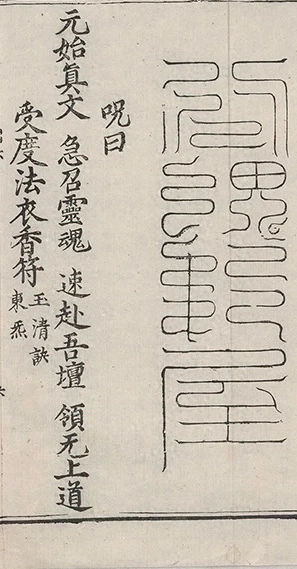 呪曰
元始真文　急召靈魂　速赴吾壇　領无上道
受度法衣香符
玉清訣
東炁